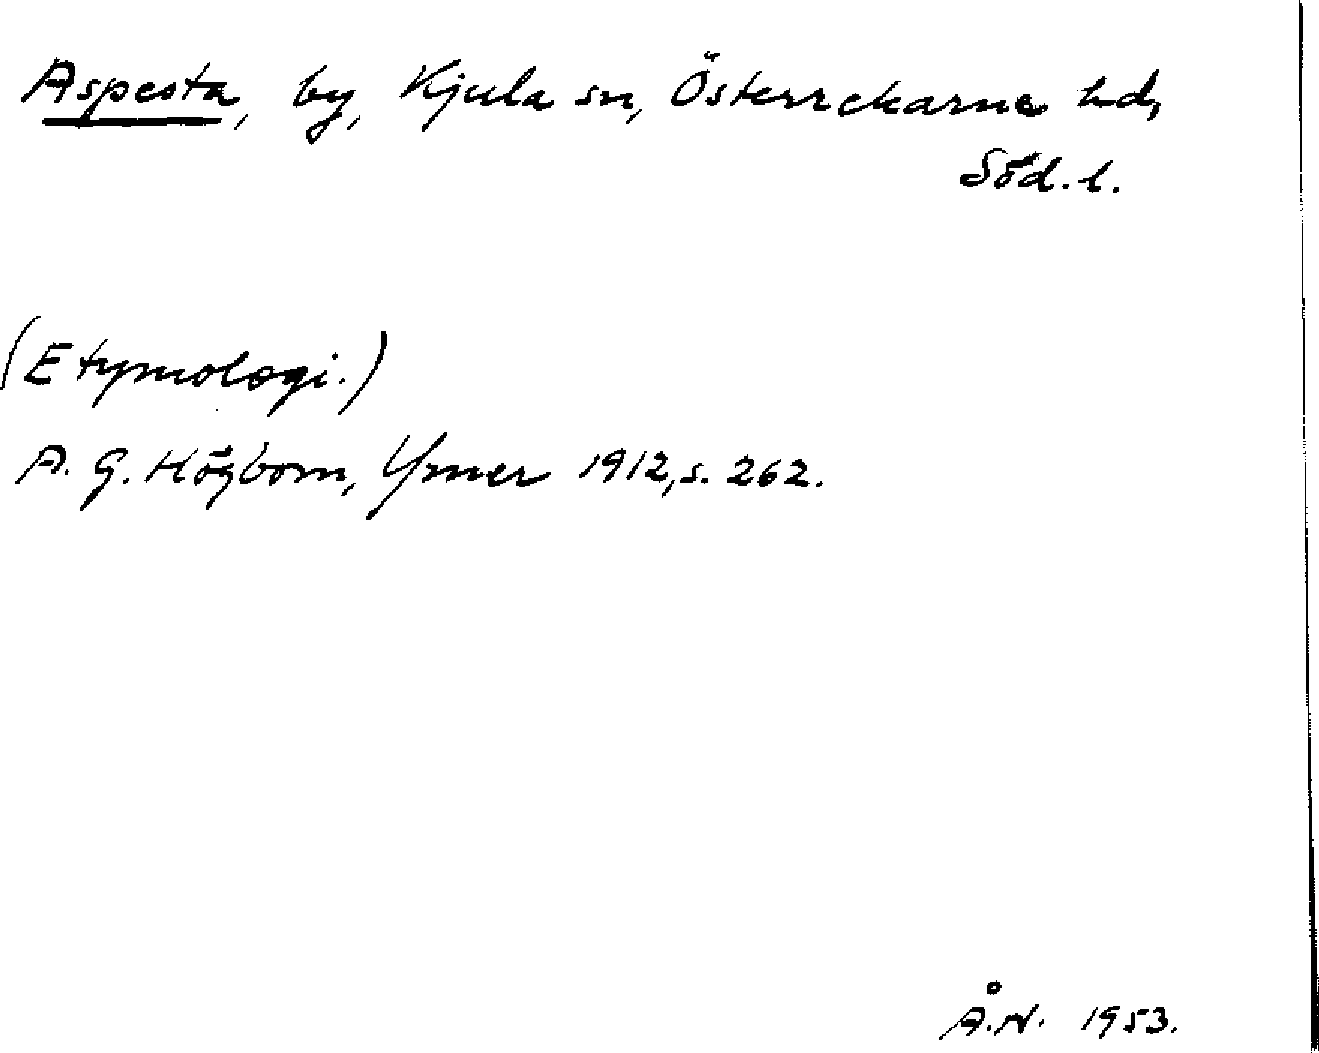 Aspesta, by, Kjula sn, Österrekarne hd,
Söd. l.
(Etymologi.)
A. G. Högbom, Ymer 1912, s. 262.
Å.N. 1953.